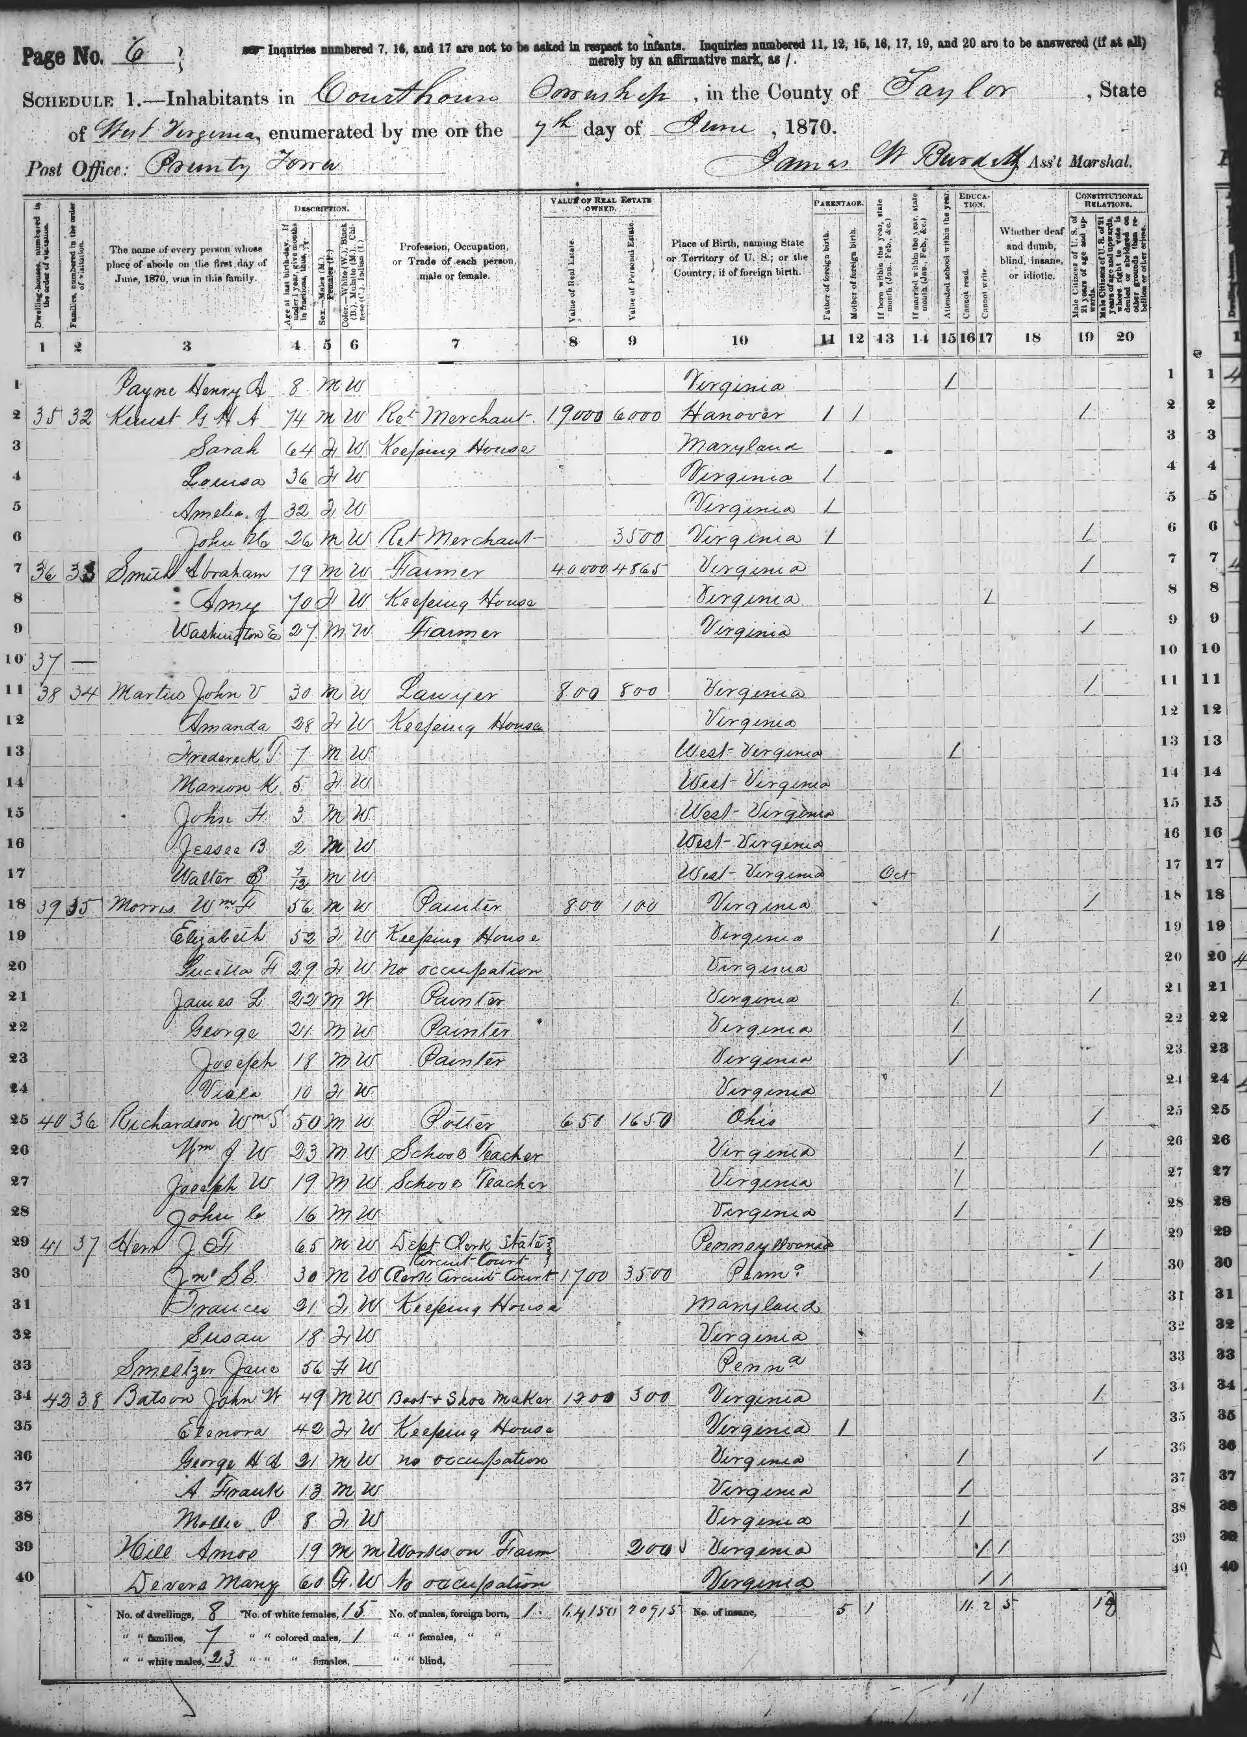 Page No. 6
Inquiries numbered 7, 16, and 17 are not to be asked in respect to infants. Inquiries numbered 11, 12, 15, 16, 17, 19, and 20 are to be answered (if at all) merely by an affirmative mark, as /.
SCHEDULE 1.—Inhabitants in Courthouse Township, in the County of Taylor, State
of West Virginia, enumerated by me on the 7th day of June, 1870.
Post Office: Prunty Town James W Burdett, Ass't Marshal.
Dwelling-houses, numbered in the order of visitation.
Families, numbered in the order of visitation.
The name of every person whose place of abode on the first day of June, 1870, was in this family.
DESCRIPTION.
Age at last birth-day. If under 1 year, give months in fractions, thus, 3/12.
Sex.—Males (M.), Females (F.)
Color.—White (W.), Black (B.), Mulatto (M.), Chinese (C.), Indian (I.)
Profession, Occupation, or Trade of each person, male or female.
VALUE OF REAL ESTATE OWNED.
Value of Real Estate.
Value of Personal Estate.
Place of Birth, naming State or Territory of U. S.; or the Country, if of foreign birth.
PARENTAGE.
Father of foreign birth.
Mother of foreign birth.
If born within the year, state month (Jan., Feb., &c.)
If married within the year, state month (Jan., Feb., &c.)
Attended school within the year.
EDUCATION.
Cannot read.
Cannot write.
Whether deaf and dumb, blind, insane, or idiotic.
CONSTITUTIONAL RELATIONS.
Male Citizens of U. S. of 21 years of age and upwards.
Male Citizens of U. S. of 21 years of age and upwards, whose right to vote is denied or abridged on other grounds than rebellion or other crime.
1 2 3 4 5 6 7 8 9 10 11 12 13 14 15 16 17 18 19 20
1 Payne Henry A 8 M W Virginia / 1
2 35 32 G H A 74 M W Ret Merchant 19000 6000 Hanover / / / 2
3 Sarah 64 F W Keeping House Maryland 3
4 Louisa 36 F W Virginia / 4
5 Amelia J 32 F W Virginia / 5
6 John 26 M W Ret Merchant 3500 Virginia / / 6
7 36 33 Smith Abraham 79 M W Farmer 40000 4865 Virginia / 7
8 Amy 70 F W Keeping House Virginia / 8
9 Washington E 27 M W Farmer Virginia / 9
10 37 — 10
11 38 34 Martin John V 30 M W Lawyer 800 800 Virginia / 11
12 Amanda 28 F W Keeping House Virginia 12
13 Frederick T 7 M W West-Virginia / 13
14 Marion K 5 F W West-Virginia 14
15 John F. 3 M W West-Virginia 15
16 Jessee B 2 M W West-Virginia 16
17 Walter 7/12 M W West-Virginia Oct 17
18 39 35 Morris Wm F 56 M W Painter 800 100 Virginia / 18
19 Elizabeth 52 F W Keeping House Virginia / 19
20 Lucilla F 29 F W No occupation Virginia 20
21 James L 22 M W Painter Virginia / / 21
22 George 21 M W Painter Virginia / 22
23 Joseph 18 M W Painter Virginia / 23
24 Viola 10 F W Virginia / 24
25 40 36 Richardson Wm S 50 M W Potter 650 1650 Ohio / 25
26 Wm J W 23 M W School Teacher Virginia / / 26
27 Joseph W 19 M W School Teacher Virginia / 27
28 John C 16 M W Virginia / 28
29 41 37 Herr J F 65 M W Dept Clerk State Circuit Court Pennsylvania / 29
30 Jno S S. 30 M W Clerk Circuit Court 1700 3500 Penna / 30
31 Frances 21 F W Keeping House Maryland 31
32 Susan 18 F W Virginia 32
33 Smeltzer Jane 56 F W Penna 33
34 42 38 Batson John W 49 M W Boot & Shoe Maker 1200 300 Virginia / 34
35 Elenora 42 F W Keeping House Virginia / 35
36 George H A 21 M W no occupation Virginia / / 36
37 A Frank 13 M W Virginia / 37
38 Mollie P 8 F W Virginia / 38
39 Hill Amos 19 M M Works on Farm 200 Virginia / / 39
40 Devers Mary 60 F W No occupation Virginia / / 40
No. of dwellings, 8 No. of white females, 15 No. of males, foreign born, 1 64150 20915 No. of insane, 5 1 11 2 5 12
" " families, 7 " " colored males, 1 " " females, " "
" " white males, 23 " " " females, " " blind,